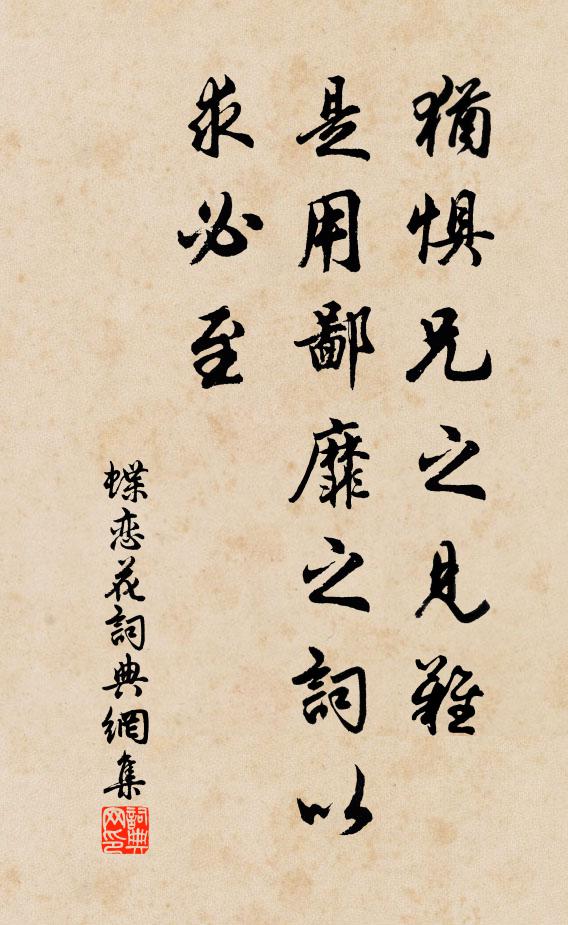 猶懼兄之見難
是用鄙靡之詞以
求必至
蝶恋花詞典網集
詞典
网印